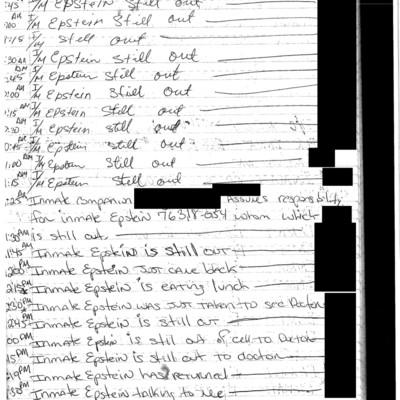 :45 I/M Epstein still out
:00 AM I/M Epstein still out
:15 I/M still out
:30 AM I/M Epstein still out
:45 AM I/M Epstein still out
:00 AM I/M Epstein still out
:15 AM I/M Epstein still out
:30 AM I/M Epstein still out
:45 AM I/M Epstein still out
1:00 AM I/M Epstein still out
1:15 AM I/M Epstein still out
:25 AM Inmate Companion assumes responsibility
for inmate Epstein 76318-054 whom which
is still out.
1:45 AM Inmate Epstein is still out
:00 PM Inmate Epstein just came back
:15 PM Inmate Epstein is eating lunch
:30 PM Inmate Epstein was just taken to see Doctor
:45 PM Inmate Epstein is still out
:00 PM Inmate Epstein is still out of cell to Doctor
:15 PM Inmate Epstein is still out to doctor
:19 PM Inmate Epstein has returned
:30 PM Inmate Epstein talking to me